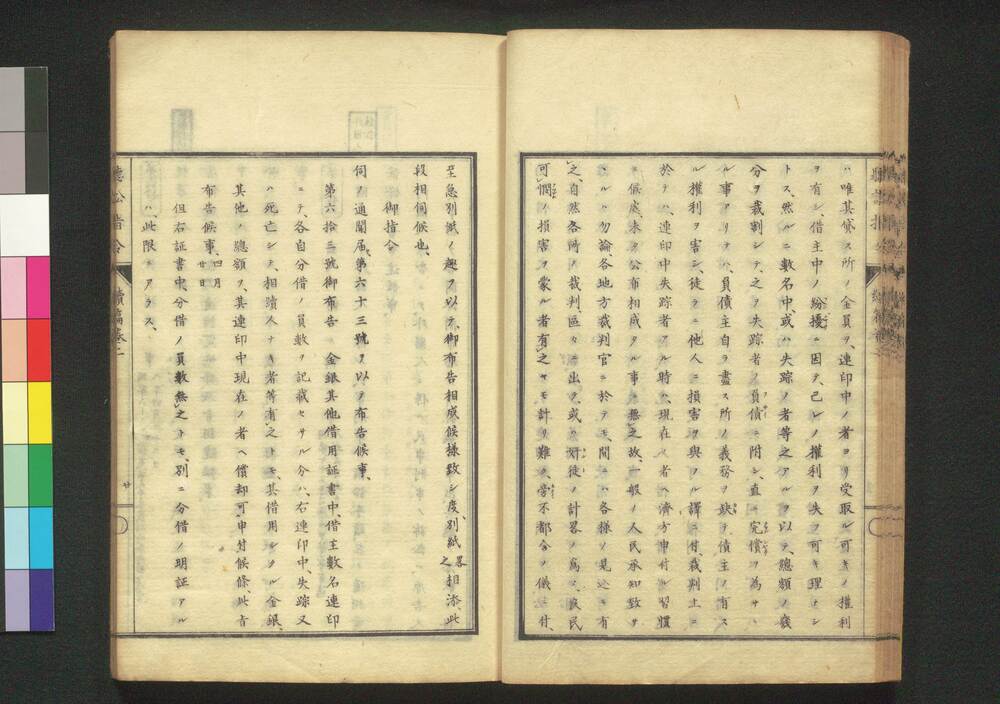 ハ唯其貸ス所ノ金員ヲ、連印中ノ者ヨリ受取ル可キノ權利
ヲ有シ、借主中ノ紛擾ニ因テ、己レノ權利ヲ失フ可キ理ナシ
トス、然ルニ數名中、或ハ失踪ノ者等之アルヲ以テ、總額ノ幾
分ヲ裁割シテ、之ヲ失踪者ノ負債ニ附シ、直ニ完償ヲ為サヽ
ル事アリテハ、負債主自ラ盡ス所ノ義務ヲ缺キ、債主ノ有ス
ル權利ヲ害シ、徒ラニ他人ニ損害ヲ與フル譯ニ付、裁判上ニ
於テハ、連印中失踪者アル時ハ、現在ノ者ヘ濟方申付ル習慣
ニ候處、未タ公布相成タル事無之故、一般ノ人民承知致サ
サルハ勿論、各地方裁判官ニ於テモ、間ニハ各様ノ見込モ有
之、自然各所ノ裁判、區々ニ出テ、或ハ奸徒ノ計畧ノ為メ、良民
可憫ノ損害ヲ蒙ル者有之ヤモ計リ難ク、旁不都合ノ儀ニ付、
至急別紙ノ趣ヲ以テ、御布告相成候様致シ度、別紙畧之相添此
段相伺候也、
御指令
伺ノ通聞届、第六十三號ヲ以テ布告候事、
第六拾三號御布告 金銀其他借用証書中、借主數名連印
ニテ、各自分借ノ員數ヲ記載セサル分ハ、右連印中、失踪又
ハ死亡シテ、相續人ナキ者等有之トモ、其借用シタル金銀、
其他ノ總額ヲ、其連印中現在ノ者ヘ償却可申付候條、此旨
布告候事、四月廿日
但右証書中、分借ノ員數無之トモ、別ニ分借ノ明証アル
ハ、此限ニアラス、
續篇卷二
廿